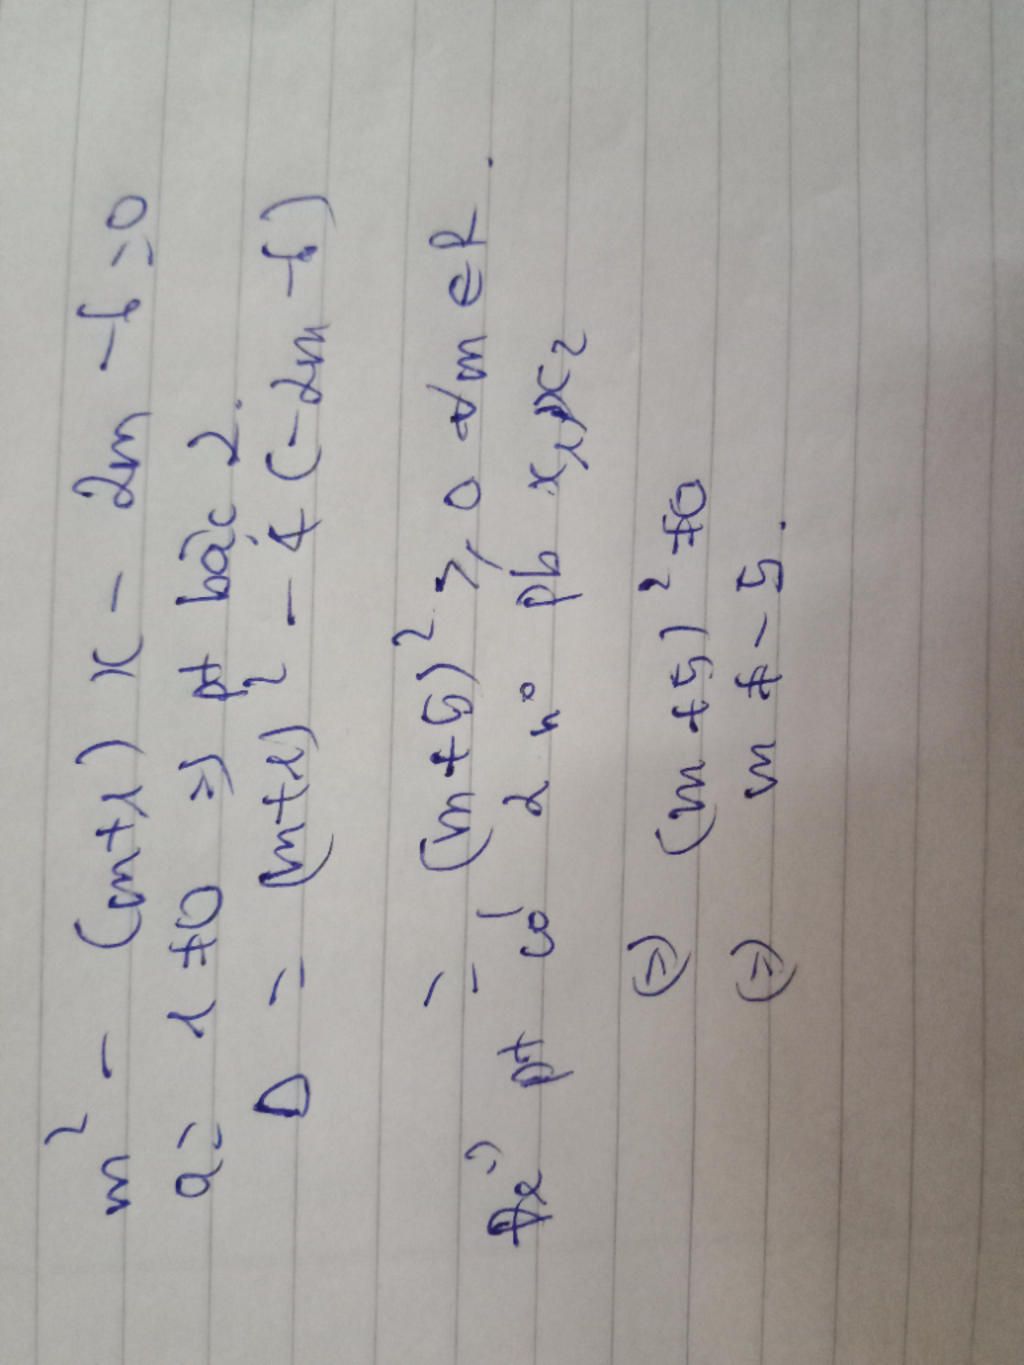 m² - (m+1)x - 2m - 6 = 0
a = 1 ≠ 0 => pt bậc 2.
Δ = (m+1)² - 4(-2m - 6)
= (m+5)² ≥ 0 ∀m ∈ R.
Để pt có 2 n⁰ pb x₁, x₂
(=) (m+5)² ≠ 0
(=) m ≠ -5.